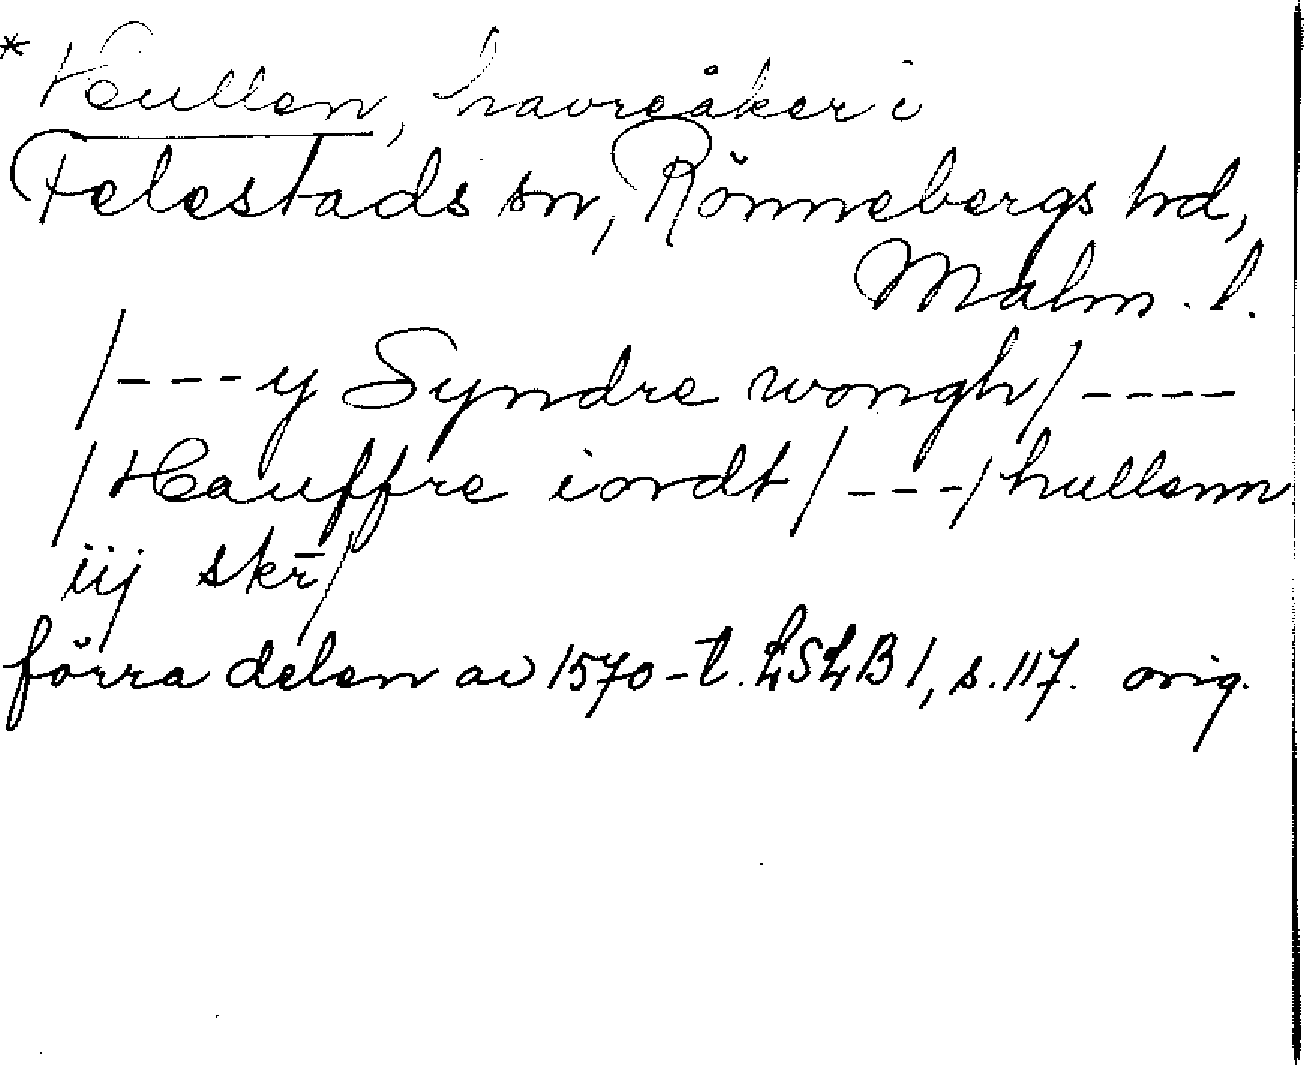 * Hullen, havreåker i
Felestads sn, Rönnebergs hd,
Malm. l.
/---y Syndre wongh/----
/Hauffre iordt/---/hullenn
iij skr̄/
förra delen av 1570-t. LSLB 1, s. 117. orig.